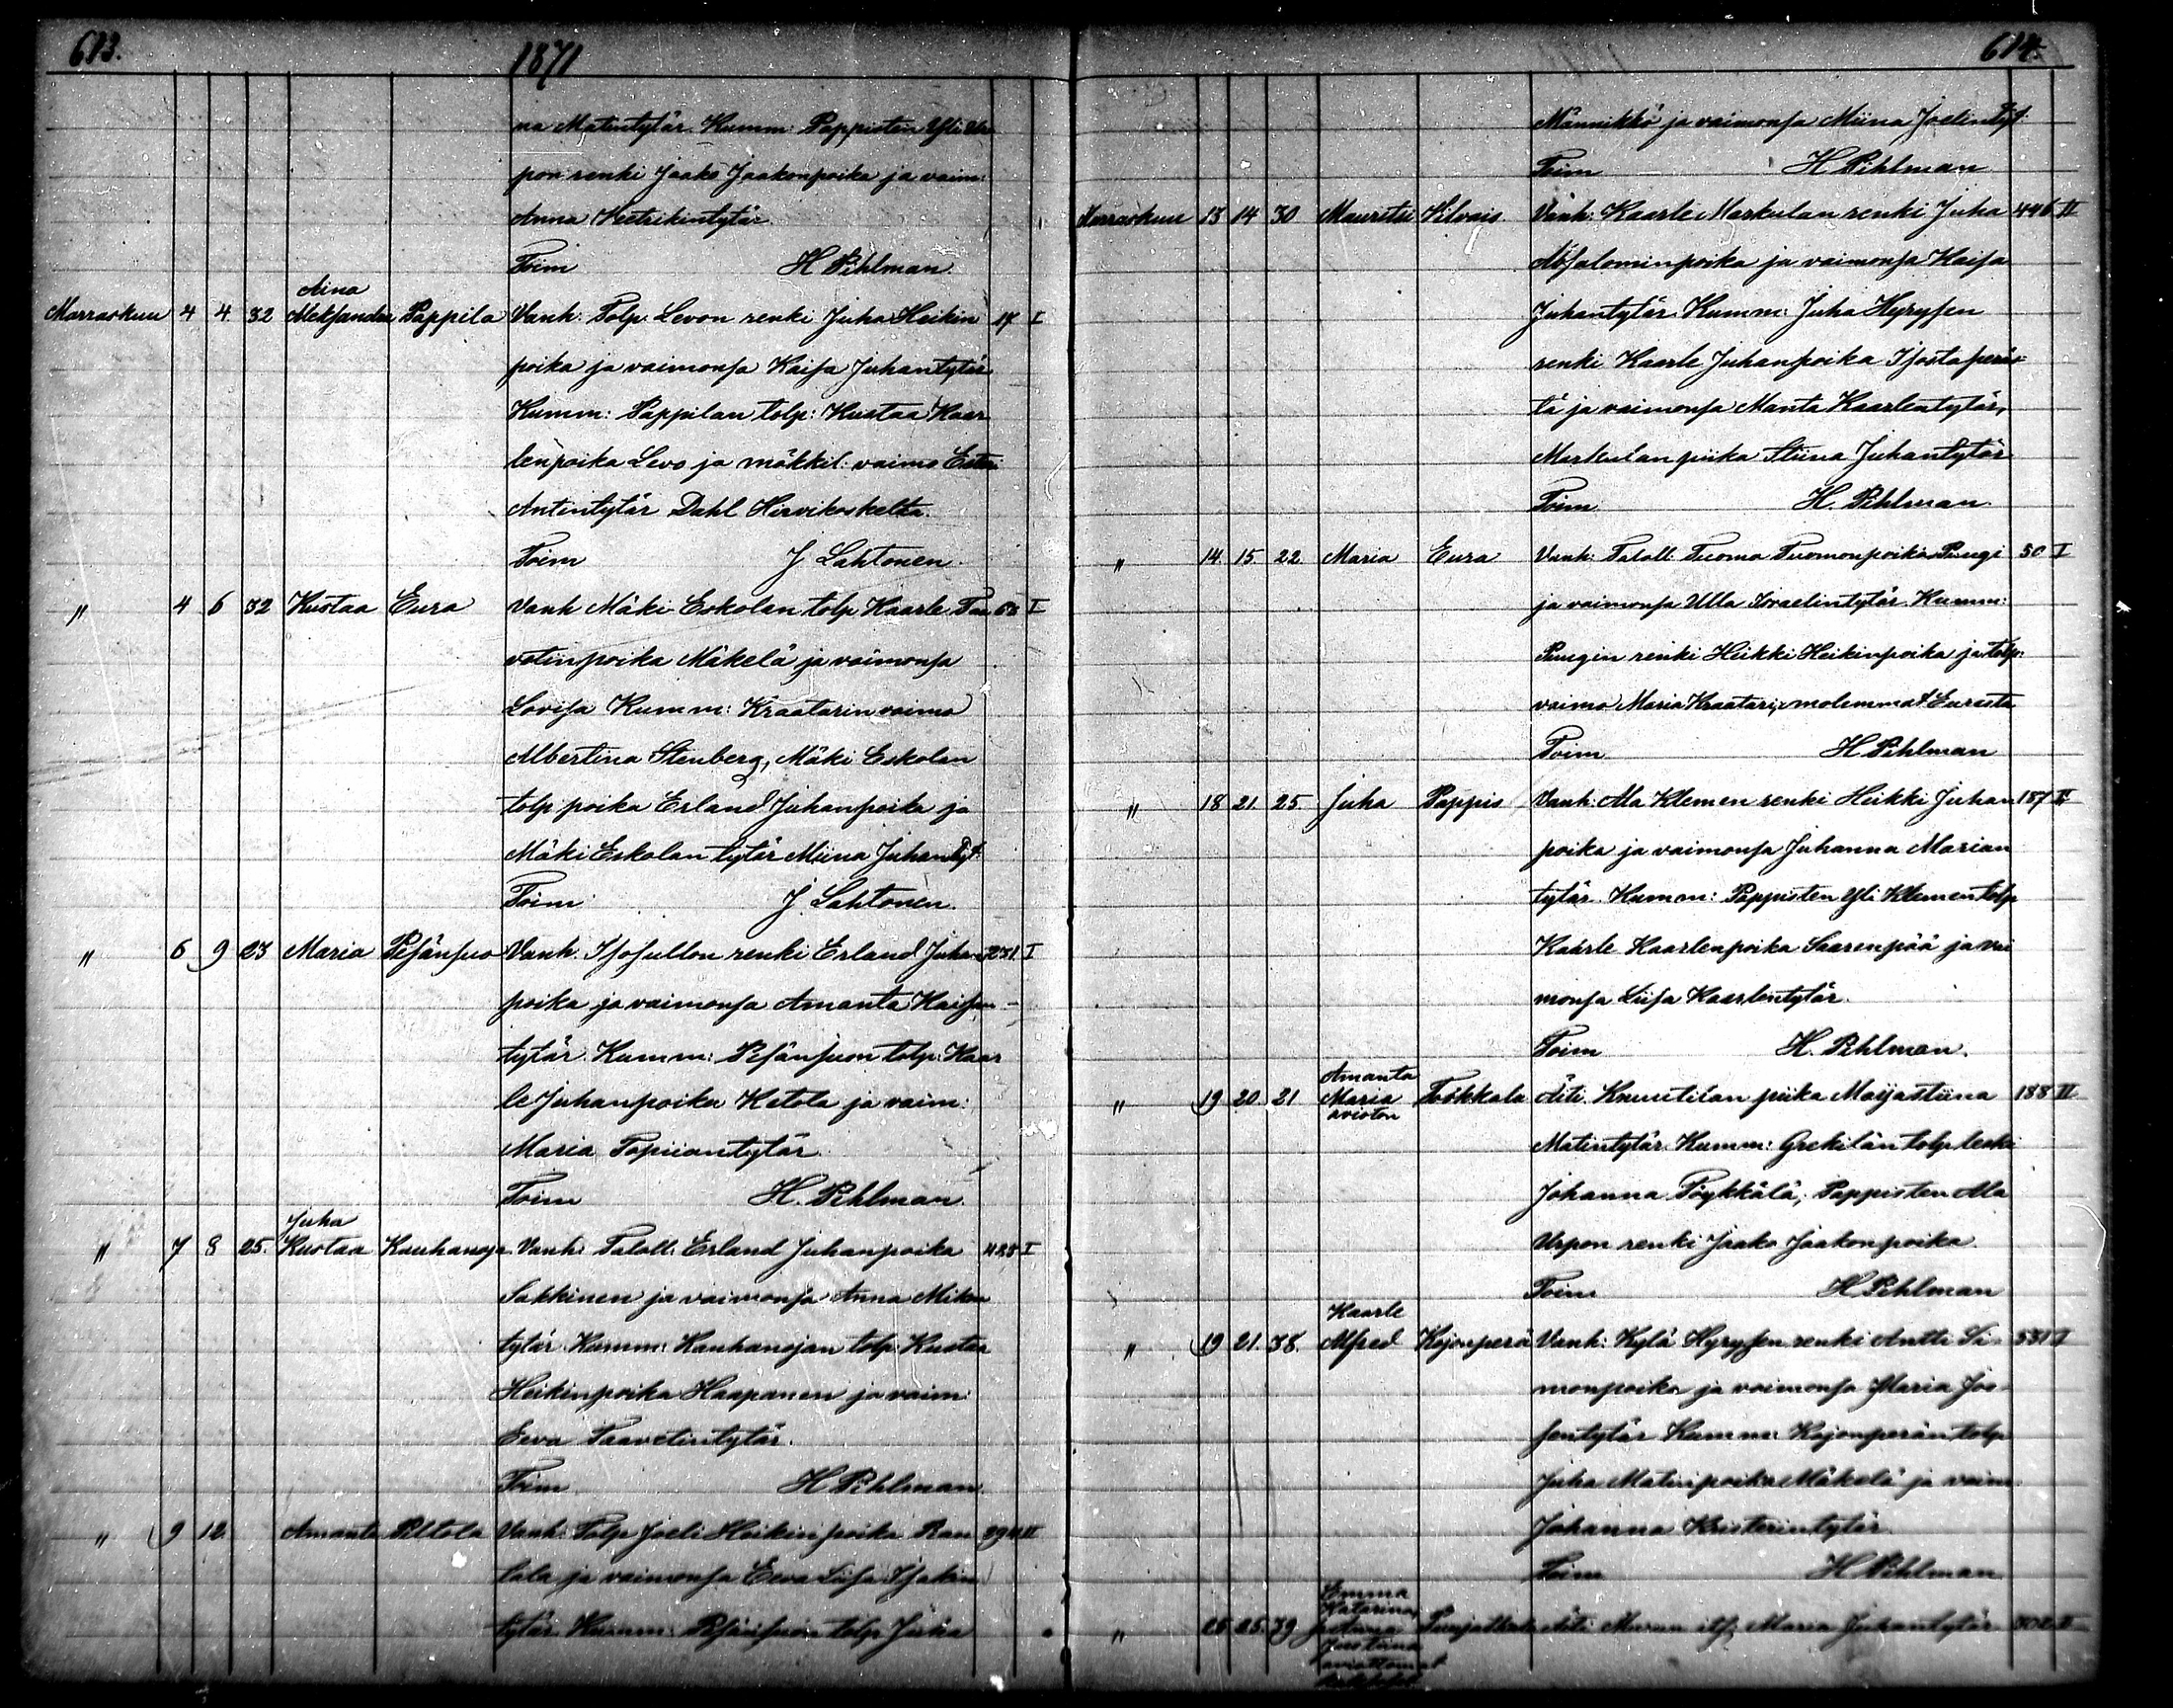 613.
1871
na Matintytär. Kumm: Pappisten Yli Ur
pon renki Jaako Jaakonpoika ja vaim:
Anna Keetrikintytär.
Toim H Pihlman
Aina
Marraskuu 4 4. 32 Aleksandra Pappila Vanh: Tolp. Levon renki Juha Heikin 17 I
poika ja vaimonsa Kaisa Juhantytär
Kumm: Pappilan tolp: Kustaa Kaar
lenpoika Levo ja mäkkil: vaimo Ester
Antintytär Dahl Hirvikoskelta.
Toim J Lahtonen.
" 4 6 32 Kustaa Eura Vanh Mäki Eskolan tolp Kaarle Taa 63 I
vetinpoika Mäkelä ja vaimonsa
Lovisa Kumm: Kraatarin vaimo
Albertina Stenberg, Mäki Eskolan
tolp poika Erland Juhanpoika ja
Mäki Eskolan tytär Miina Juhantyt.
Toim J. Lahtonen.
" 6 9 23 Maria Pesänsuo Vanh. Isosullon renki Erland Juhan 231 I
poika ja vaimonsa Amanta Kaisan-
tytär. Kumm: Pesänsuon tolp: Kaar
le Juhanpoika Ketola ja vaim:
Maria Topiiantytär.
Toim H. Pihlman.
Juha
" 7 8 25. Kustaa Kauhanoja Vanh: Taloll: Erland Juhanpoika 428 I
Sakkinen ja vaimonsa Anna Mikon
tytär. Kumm: Kauhanojan tolp: Kustaa
Heikinpoika Haapanen ja vaim:
Eeva Taavetintytär.
Toim H Pihlman.
" 9 12. Amanta Piltola Vanh: Tolp Joeli Heikinpoika Ran 294 II
lala ja vaimonsa Eeva Liisa Isakin
tytär. Kumm: Pesänsuon tolp Juha
614.
Männikkö ja vaimonsa Miina Joelintyt.
Toim H Pihlman
Marraskuu 13 14 30 Mauritsi Kilvais Vanh: Kaarle Markulan renki Juha 446 II
Absalominpoika ja vaimonsa Kaisa
Juhantytär. Kumm: Juha Hyrysen
renki Kaarle Juhanpoika Isostaperäs
tä ja vaimonsa Manta Kaarlentytär,
Markulan piika Stiina Juhantytär
Toim H. Pihlman.
" 14. 15. 22. Maria Eura Vanh: Taloll. Tuomo Tuomonpoika Puugi 30 I
ja vaimonsa Ulla Israelintytär. Kumm:
Puugin renki Heikki Heikinpoika ja tolp:
vaimo Maria Kraatari, molemmat Eurasta
Toim H Pihlman
" 18 21. 25. Juha Pappis Vanh: Ala Klemen renki Heikki Juhan 187 II
poika ja vaimonsa Juhanna Marian
tytär. Kumm: Pappisten Yli Klemen tolp
Kaarle Kaarlenpoika Saarenpää ja vai
monsa Liisa Kaarlentytär.
Toim H. Pihlman.
Amanta
" 19 20. 21 Maria Taskkala Äiti. Knuutilan piika Maijastiina 188 II
avioton
Matintytär. Kumm: Grekilän tolp leski
Johanna Töykkälä, Pappisten Ala
Urpon renki Jaako Jaakonpoika.
Toim H Pihlman
Kaarle
" 19 21. 38. Alfred Kojonperä Vanh: Kylä Hyrysen renki Antti Si- 331 I
monpoika ja vaimonsa Maria Joo-
sentytär. Kumm: Kojonperän tolp
Juha Matinpoika Mäkelä ja vaim
Johanna Kristerintytär.
Toim H Pihlman
Emma
Katarina,
" 25 25. 39 Puujalkala Äiti Murun its, Maria Juhantytär 302 II
Justiina
aviottomat